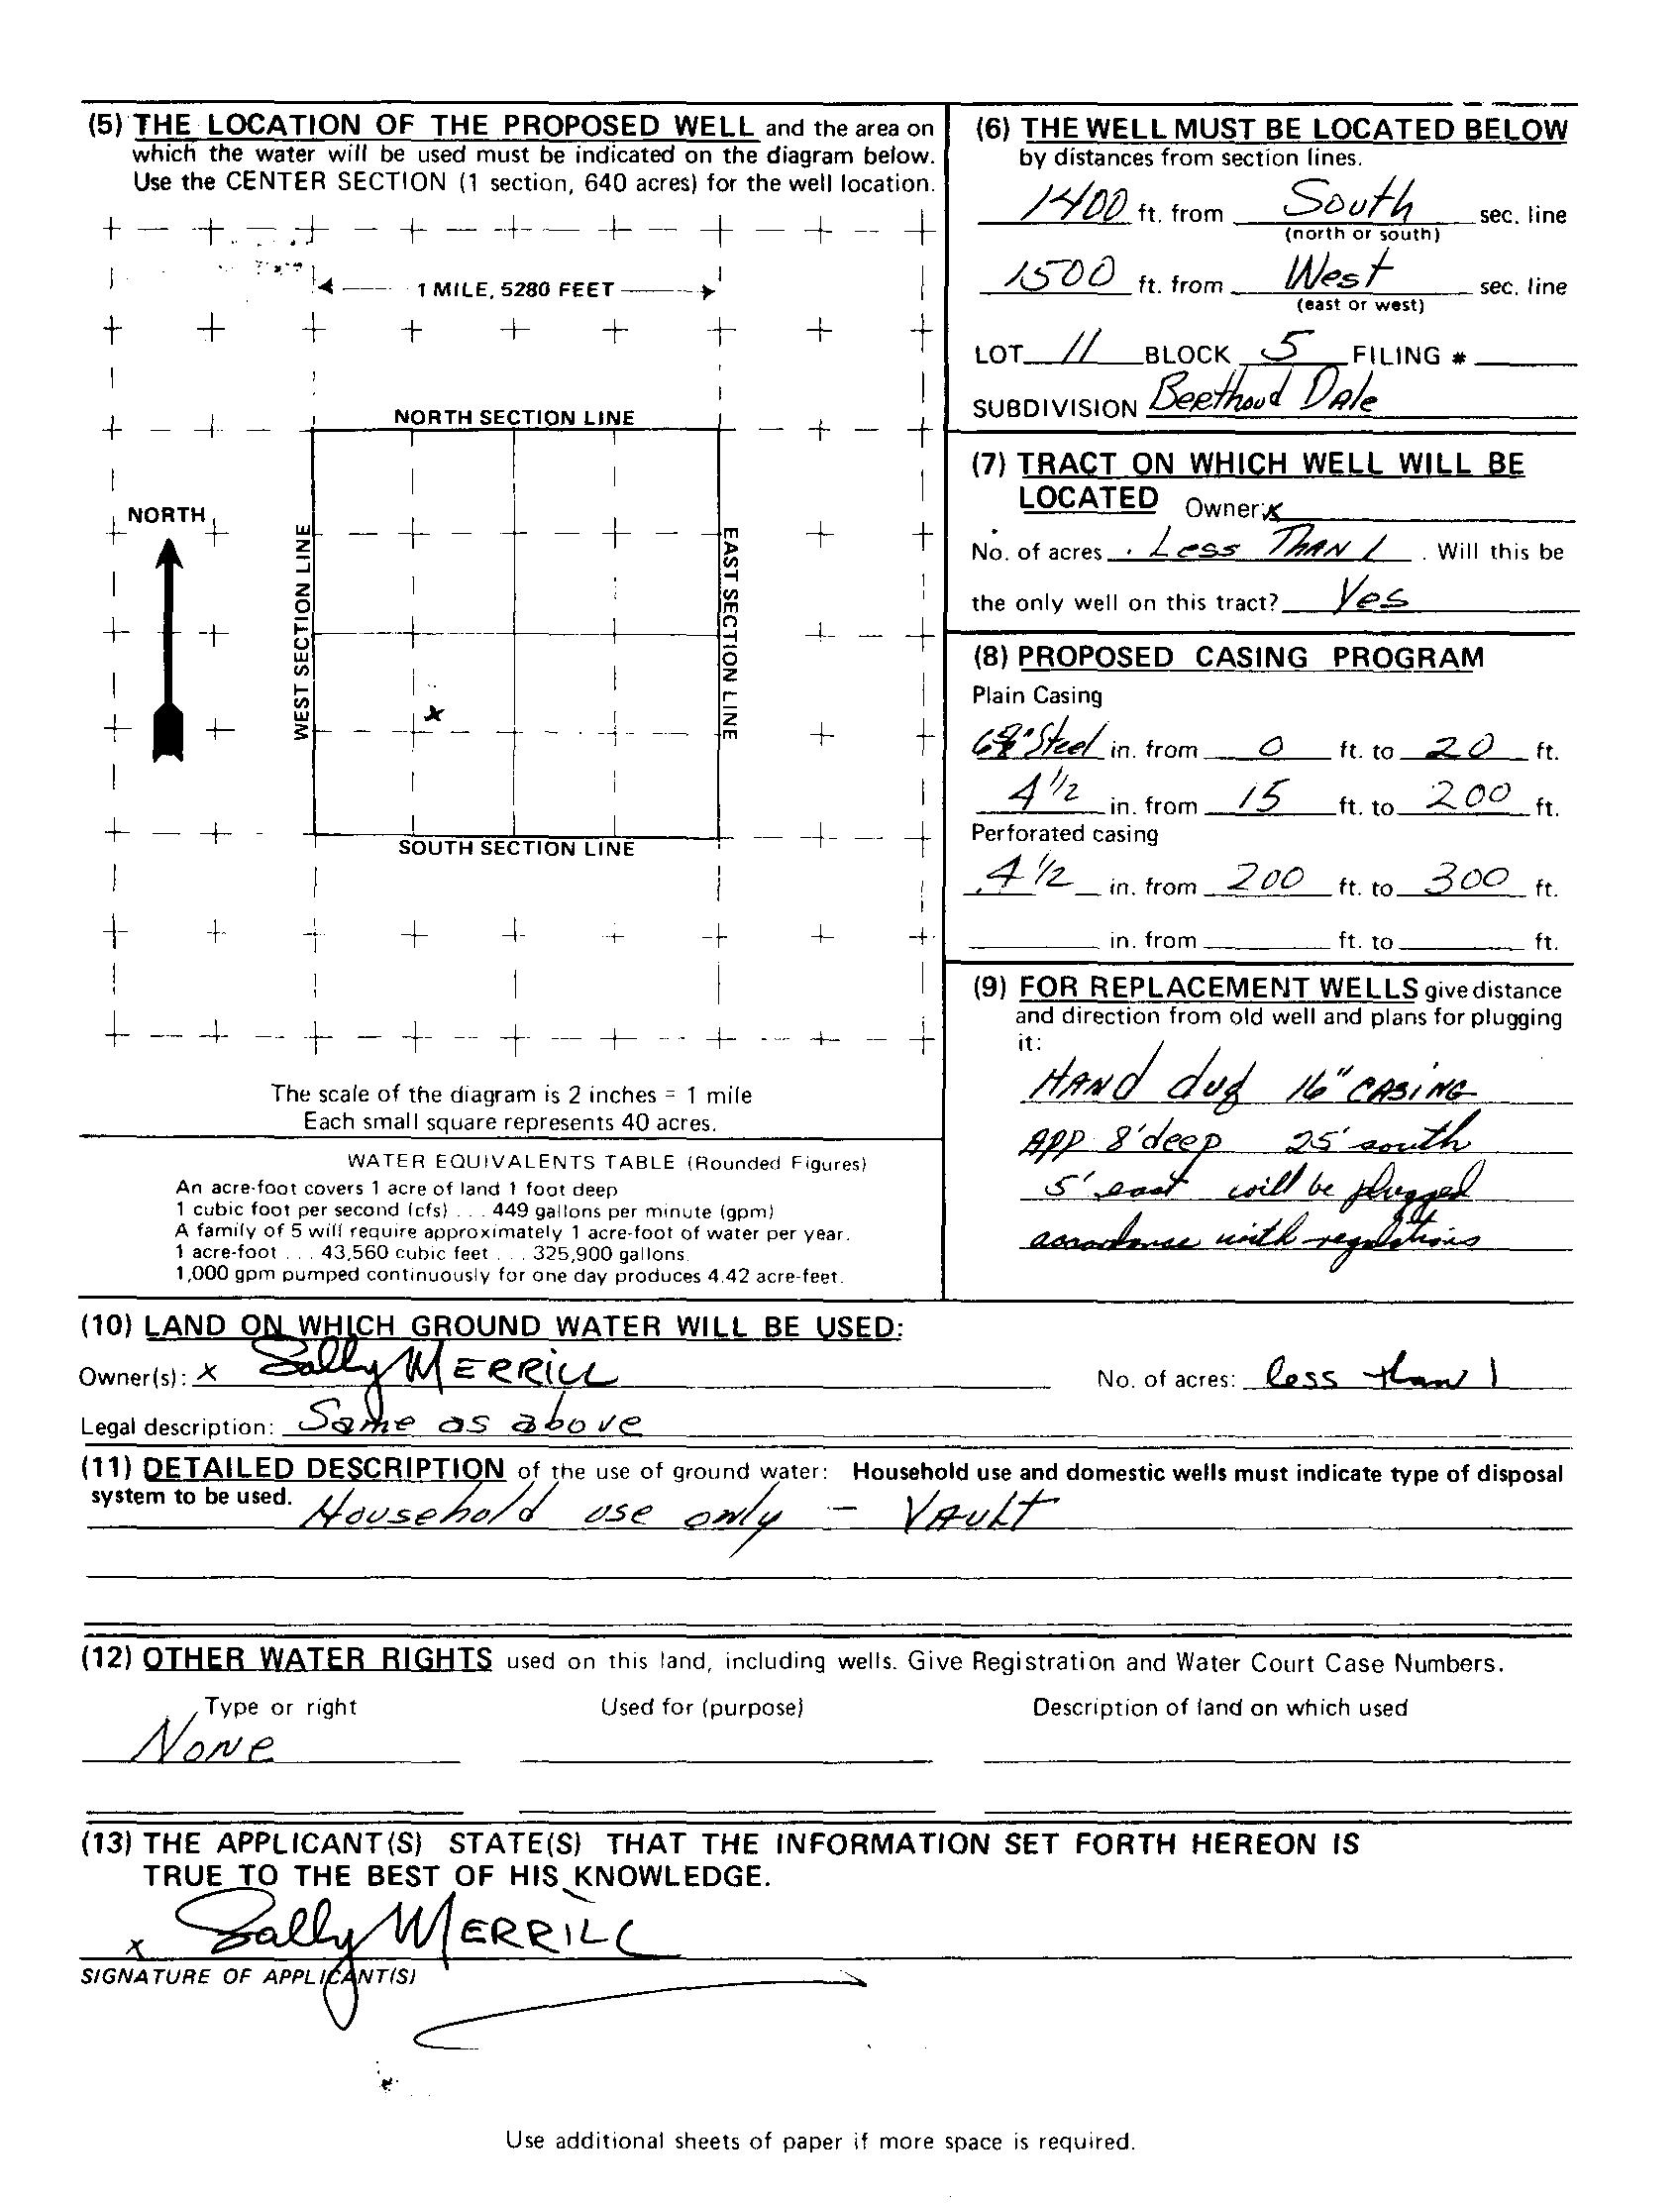 (5) THE LOCATION OF THE PROPOSED WELL and the area on
which the water will be used must be indicated on the diagram below.
Use the CENTER SECTION (1 section, 640 acres) for the well location.
1 MILE, 5280 FEET
NORTH SECTION LINE
NORTH
WEST SECTION LINE
EAST SECTION LINE
X
SOUTH SECTION LINE
The scale of the diagram is 2 inches = 1 mile
Each small square represents 40 acres.
WATER EQUIVALENTS TABLE (Rounded Figures)
An acre-foot covers 1 acre of land 1 foot deep
1 cubic foot per second (cfs) . . . 449 gallons per minute (gpm)
A family of 5 will require approximately 1 acre-foot of water per year.
1 acre-foot . . . 43,560 cubic feet . . . 325,900 gallons.
1,000 gpm pumped continuously for one day produces 4.42 acre-feet.
(6) THE WELL MUST BE LOCATED BELOW
by distances from section lines.
1400 ft. from South sec. line
(north or south)
1500 ft. from West sec. line
(east or west)
LOT 11 BLOCK 5 FILING #
SUBDIVISION Berthoud Dale
(7) TRACT ON WHICH WELL WILL BE
LOCATED Owner: x
No. of acres Less THAN 1 . Will this be
the only well on this tract? Yes
(8) PROPOSED CASING PROGRAM
Plain Casing
6 5/8" Steel in. from 0 ft. to 20 ft.
4 1/2 in. from 15 ft. to 200 ft.
Perforated casing
4 1/2 in. from 200 ft. to 300 ft.
in. from ft. to ft.
(9) FOR REPLACEMENT WELLS give distance
and direction from old well and plans for plugging
it:
HAND dug 16" CASING
APP 8' deep 25' south
5' east will be plugged
accordance with regulations
(10) LAND ON WHICH GROUND WATER WILL BE USED:
Owner(s): x Sally MERRILL No. of acres: less than 1
Legal description: Same as above
(11) DETAILED DESCRIPTION of the use of ground water: Household use and domestic wells must indicate type of disposal
system to be used. Household use only - VAULT
(12) OTHER WATER RIGHTS used on this land, including wells. Give Registration and Water Court Case Numbers.
Type or right Used for (purpose) Description of land on which used
None
(13) THE APPLICANT(S) STATE(S) THAT THE INFORMATION SET FORTH HEREON IS
TRUE TO THE BEST OF HIS KNOWLEDGE.
x Sally MERRILL
SIGNATURE OF APPLICANT(S)
Use additional sheets of paper if more space is required.